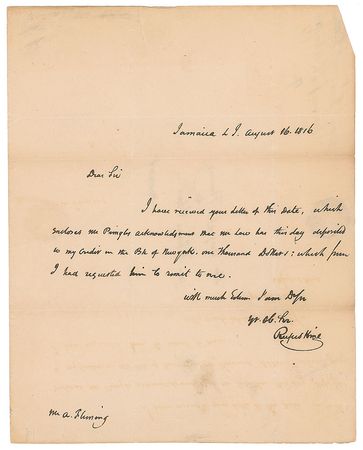 Jamaica L I. August 16. 1816
Dear Sir
I have received your letter of this date, which
encloses Mr Pringles acknowledgment that Mr Low has this day deposited
to my Credit in the Bk of Newyork, one Thousand Dollars; which sum
I had requested him to remit to me.
with much Esteem I am D Sir
yr. Ob. Ser.
Rufus King
Mr A. Fleming